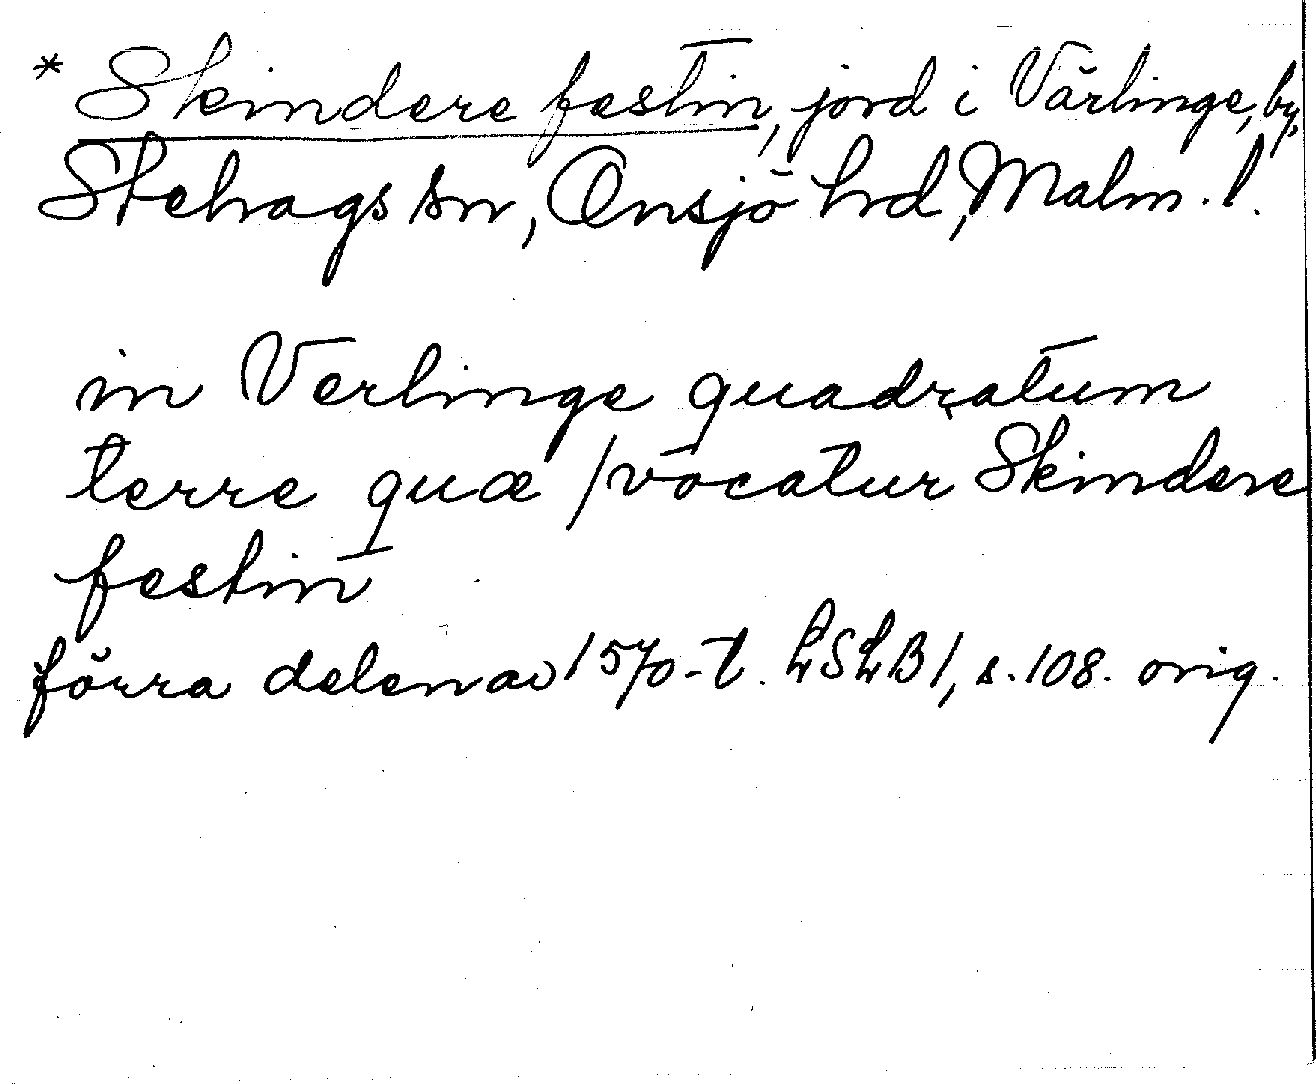 * Skindere festin, jord i Värlinge, by,
Stehags sn, Onsjö hd, Malm. l.
in Verlinge quadratum
terre quæ / vocatur Skindere
festin
förra delen av 1570-t. LSLB 1, s. 108. orig.